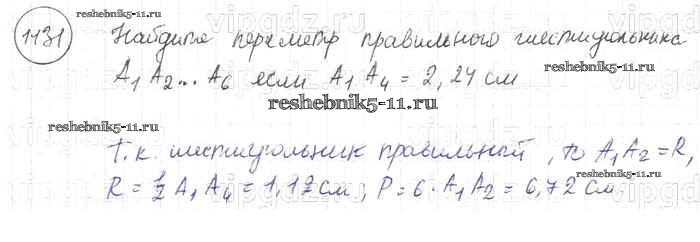 reshebnik5-11.ru
1131 Найдите периметр правильного шестиугольника
A₁ A₂... A₆ если A₁ A₄ = 2,24 см
reshebnik5-11.ru
reshebnik5-11.ru
reshebnik5-11.ru
Т.к. шестиугольник правильный, то A₁A₂ = R,
R = ½ A₁A₄ = 1,12 см; P = 6 · A₁A₂ = 6,72 см
reshebnik5-11.ru